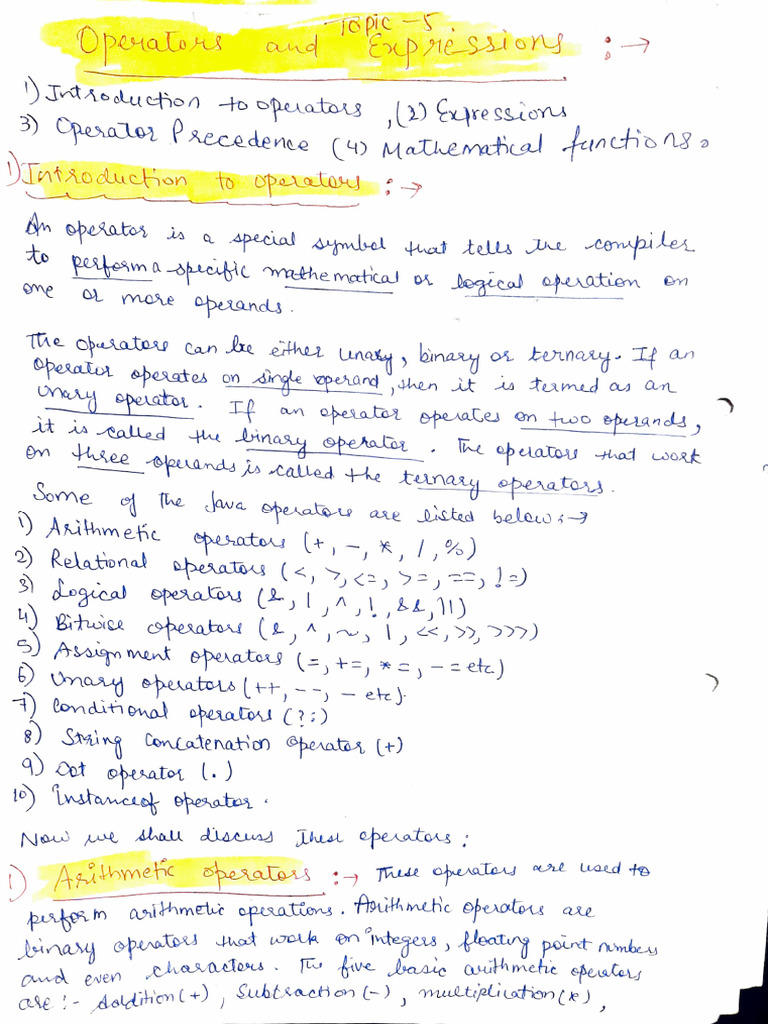 Topic-5
Operators and Expressions :→
1) Introduction to operators, (2) Expressions
3) Operator Precedence (4) Mathematical functions.
1) Introduction to operators :→
An operator is a special symbol that tells the compiler
to perform a specific mathematical or logical operation on
one or more operands.
The operators can be either unary, binary or ternary. If an
operator operates on single operand, then it is termed as an
unary operator. If an operator operates on two operands,
it is called the binary operator. The operators that work
on three operands is called the ternary operators.
Some of the Java operators are listed below :→
1) Arithmetic operators (+, -, *, /, %)
2) Relational operators (<, >, <=, >=, ==, !=)
3) Logical operators (&, |, ^, !, &&, ||)
4) Bitwise operators (&, ^, ~, |, <<, >>, >>>)
5) Assignment operators (=, +=, *=, -= etc)
6) Unary operators (++, --, - etc).
7) Conditional operators (?:)
8) String Concatenation operator (+)
9) Dot operator (.)
10) Instanceof operator.
Now we shall discuss these operators :
1) Arithmetic operators :→ These operators are used to
perform arithmetic operations. Arithmetic operators are
binary operators that work on integers, floating point numbers
and even characters. The five basic arithmetic operators
are :- Addition(+), Subtraction(-), multiplication(*),